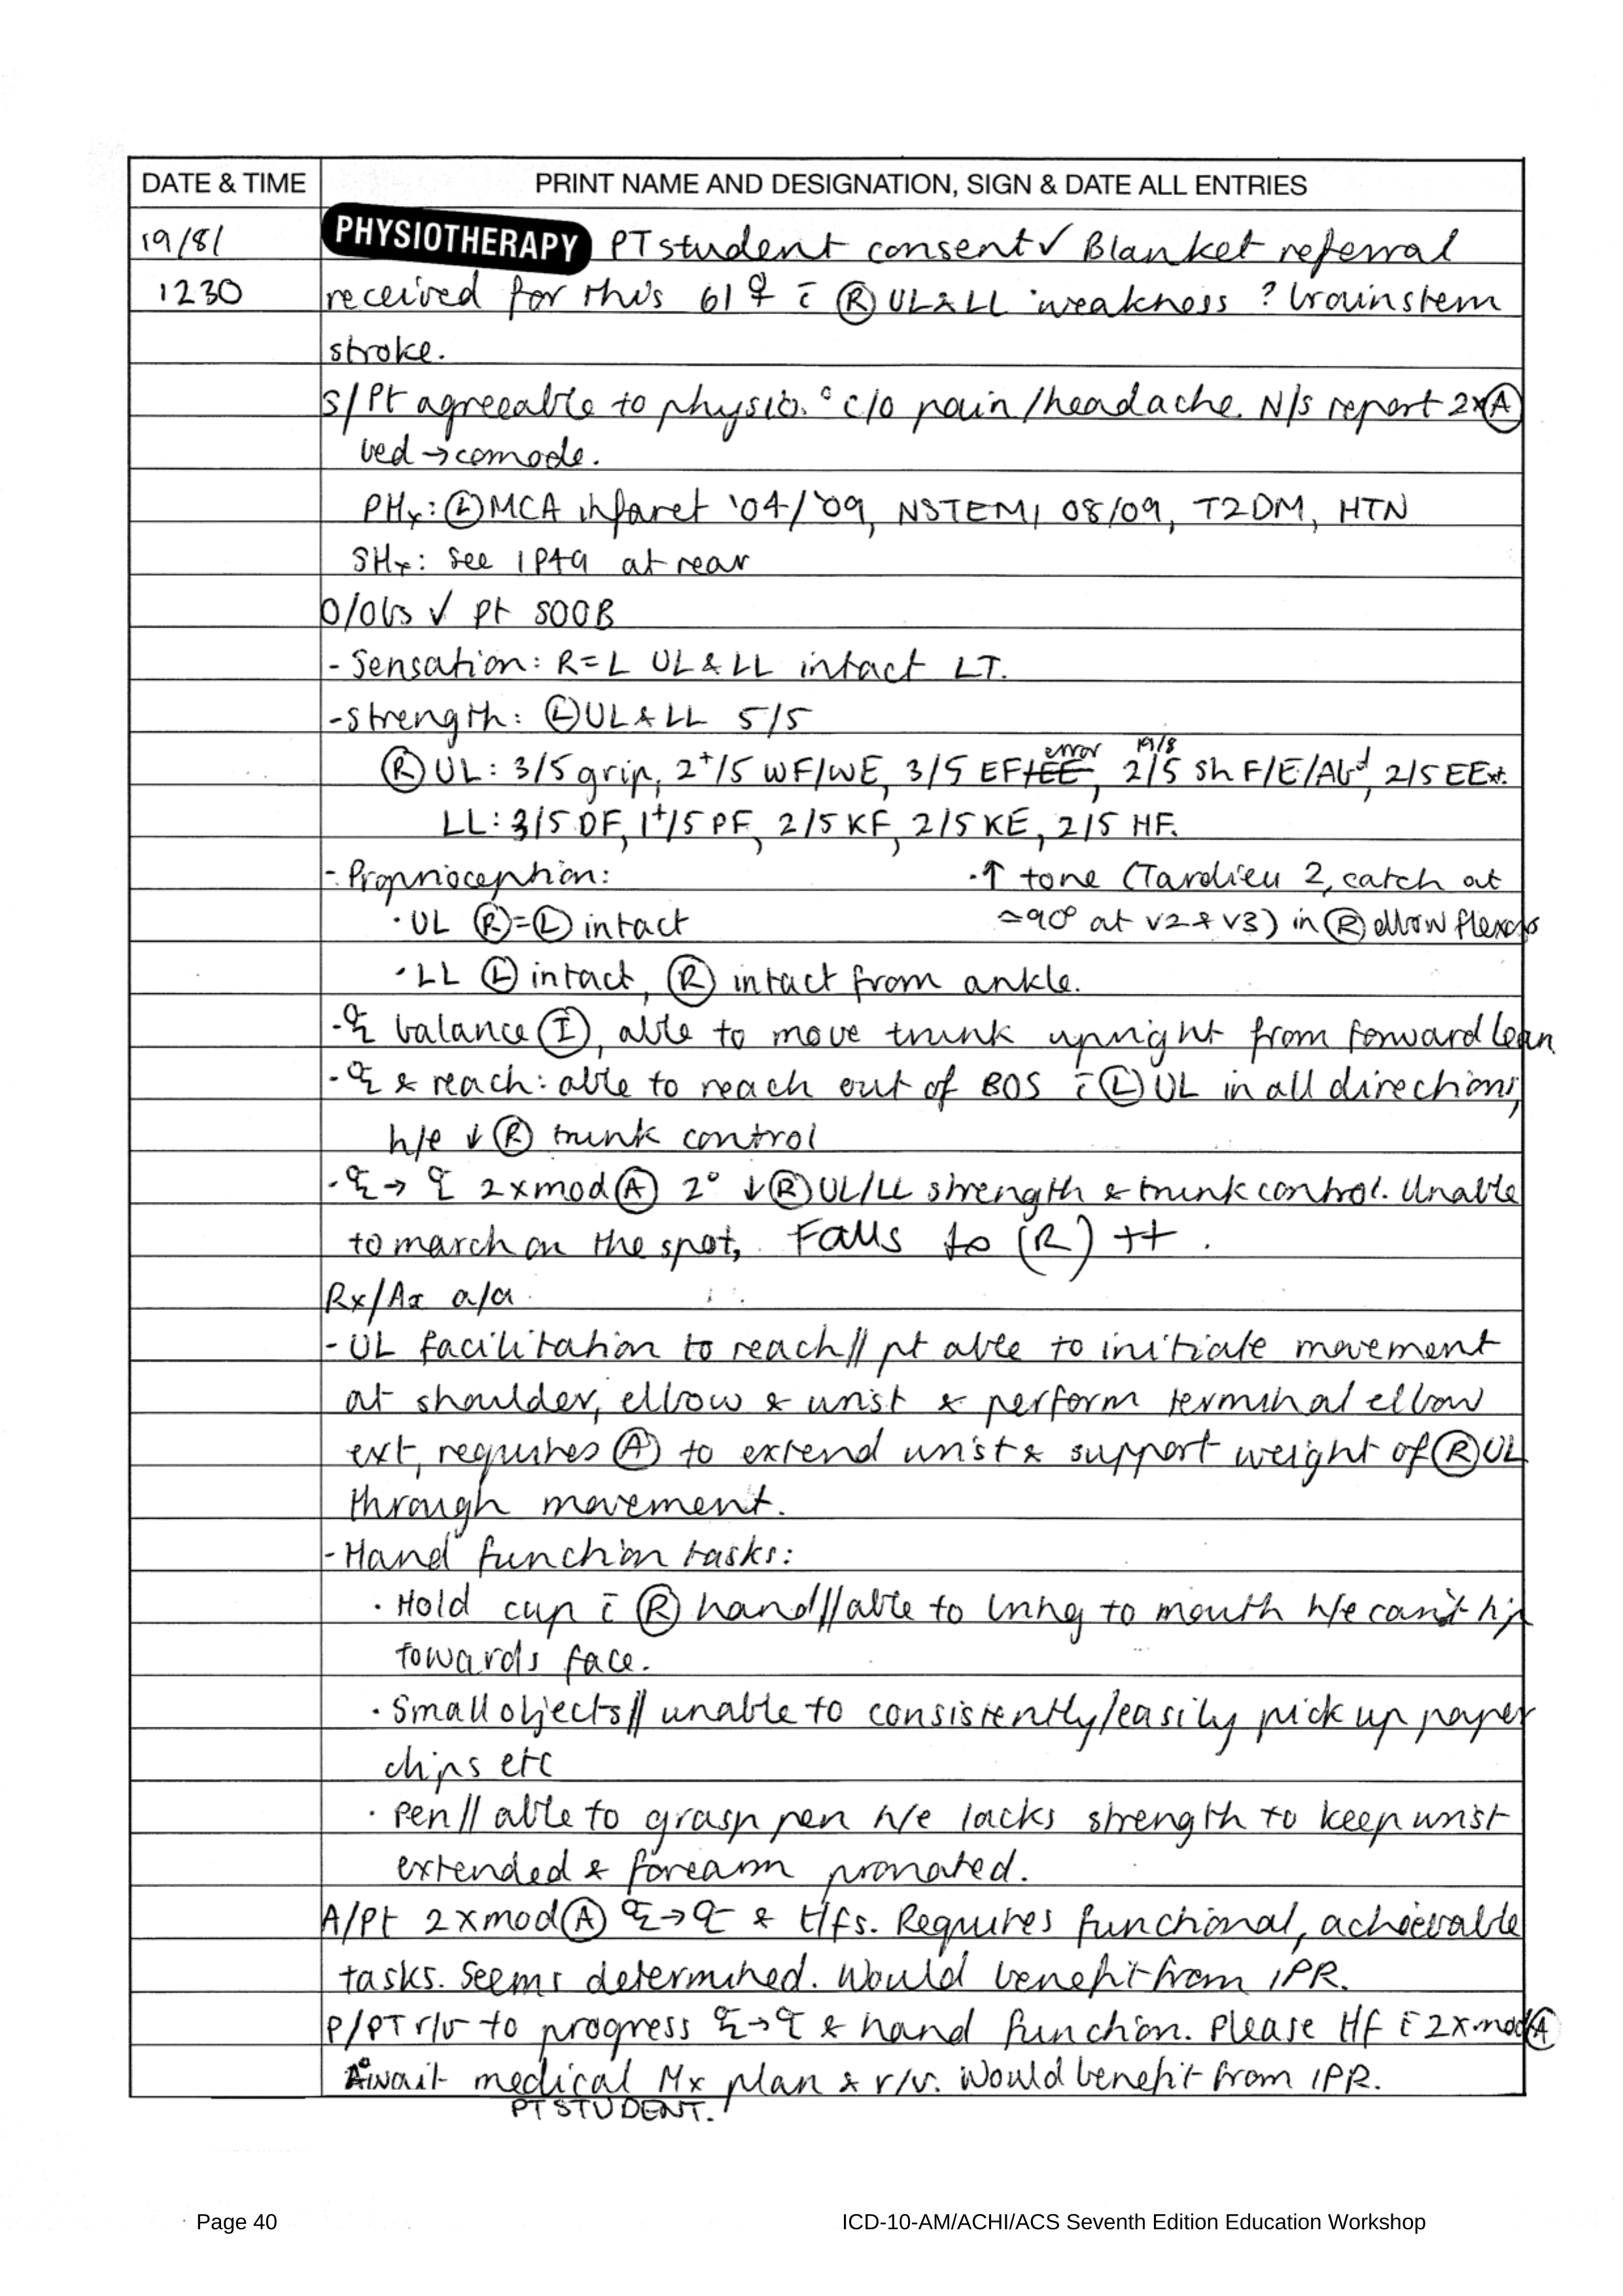 DATE & TIME PRINT NAME AND DESIGNATION, SIGN & DATE ALL ENTRIES
19/8/ PHYSIOTHERAPY PT student consent ✓ Blanket referral
1230 received for this 61 ♀ c̄ Ⓡ UL & LL weakness ? brainstem
stroke.
S/ Pt agreeable to physio. ° c/o pain/headache. N/s report 2xⒶ
bed → comode.
PHx: Ⓛ MCA infarct '04/'09, NSTEMI 08/09, T2DM, HTN
SHx: see at rear
O/ Obs ✓ pt SOOB
- Sensation: R=L UL & LL intact LT.
- Strength: Ⓛ UL & LL 5/5
error 19/8
Ⓡ UL: 3/5 grip, 2⁺/5 WF/WE, 3/5 EF+EE, 2/5 Sh F/E/Abd, 2/5 EExt.
LL: 3/5 DF, 1⁺/5 PF, 2/5 KF, 2/5 KE, 2/5 HF.
- Proprioception: · ↑ tone (Tardieu 2, catch at
· UL Ⓡ=Ⓛ intact ≃90° at V2 & V3) in Ⓡ elbow flexors
· LL Ⓛ intact, Ⓡ intact from ankle.
- balance Ⓘ, able to move trunk upright from forward lean
- & reach: able to reach out of BOS c̄ Ⓛ UL in all directions,
h/e ↓ Ⓡ trunk control
- → 2xmod Ⓐ 2° ↓ Ⓡ UL/LL strength & trunk control. Unable
to march on the spot, Falls to (R) ++.
Rx/Ax a/a
- UL facilitation to reach// pt able to initiate movement
at shoulder, elbow & wrist & perform terminal elbow
ext, requires Ⓐ to extend wrist & support weight of Ⓡ UL
through movement.
- Hand function tasks:
· Hold cup c̄ Ⓡ hand// able to bring to mouth h/e can't tip
towards face.
· Small objects// unable to consistently/easily pick up paper
chips etc
· Pen// able to grasp pen h/e lacks strength to keep wrist
extended & forearm pronated.
A/ Pt 2xmod Ⓐ → & t/fs. Requires functional, achievable
tasks. Seems determined. Would benefit from IPR.
P/ PT r/v to progress → & hand function. Please t/f c̄ 2xmod Ⓐ
Await medical Mx plan & r/v. Would benefit from IPR.
PT STUDENT.
Page 40 ICD-10-AM/ACHI/ACS Seventh Edition Education Workshop